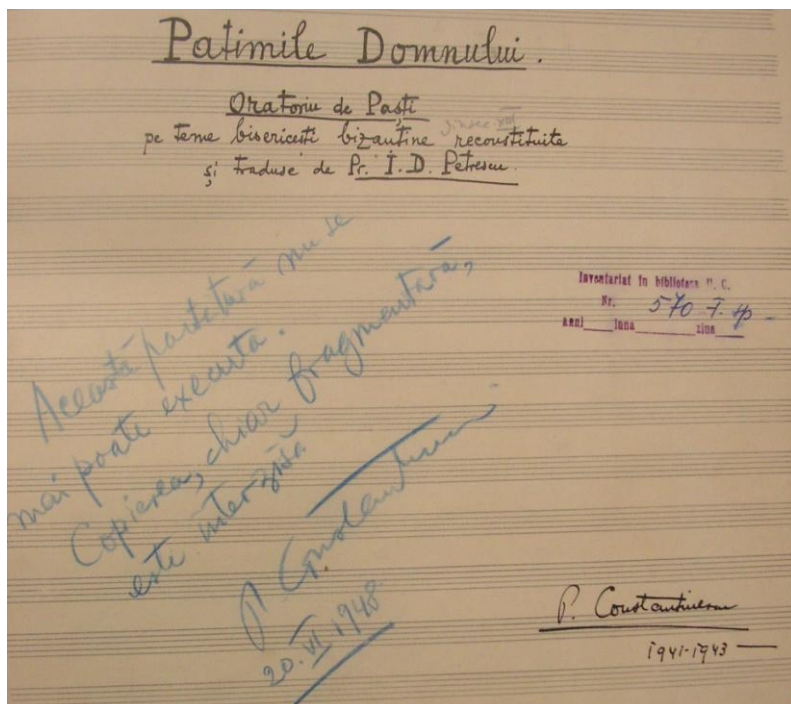 Patimile Domnului.
Oratoriu de Paști
din sec. XIII
pe teme bisericești bizantine reconstituite
și traduse de Pr. I. D. Petrescu.
Inventariat în biblioteca U. C.
Nr. 570 I.
anul luna ziua
Această partitură nu se
mai poate executa.
Copierea, chiar fragmentară,
este interzisă
P. Constantinescu
20.VI 1948
P. Constantinescu
1941-1943